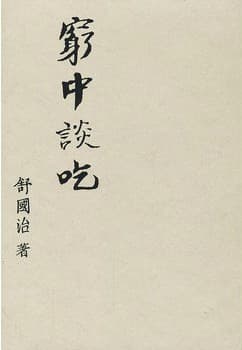 窮中談吃
舒國治 著